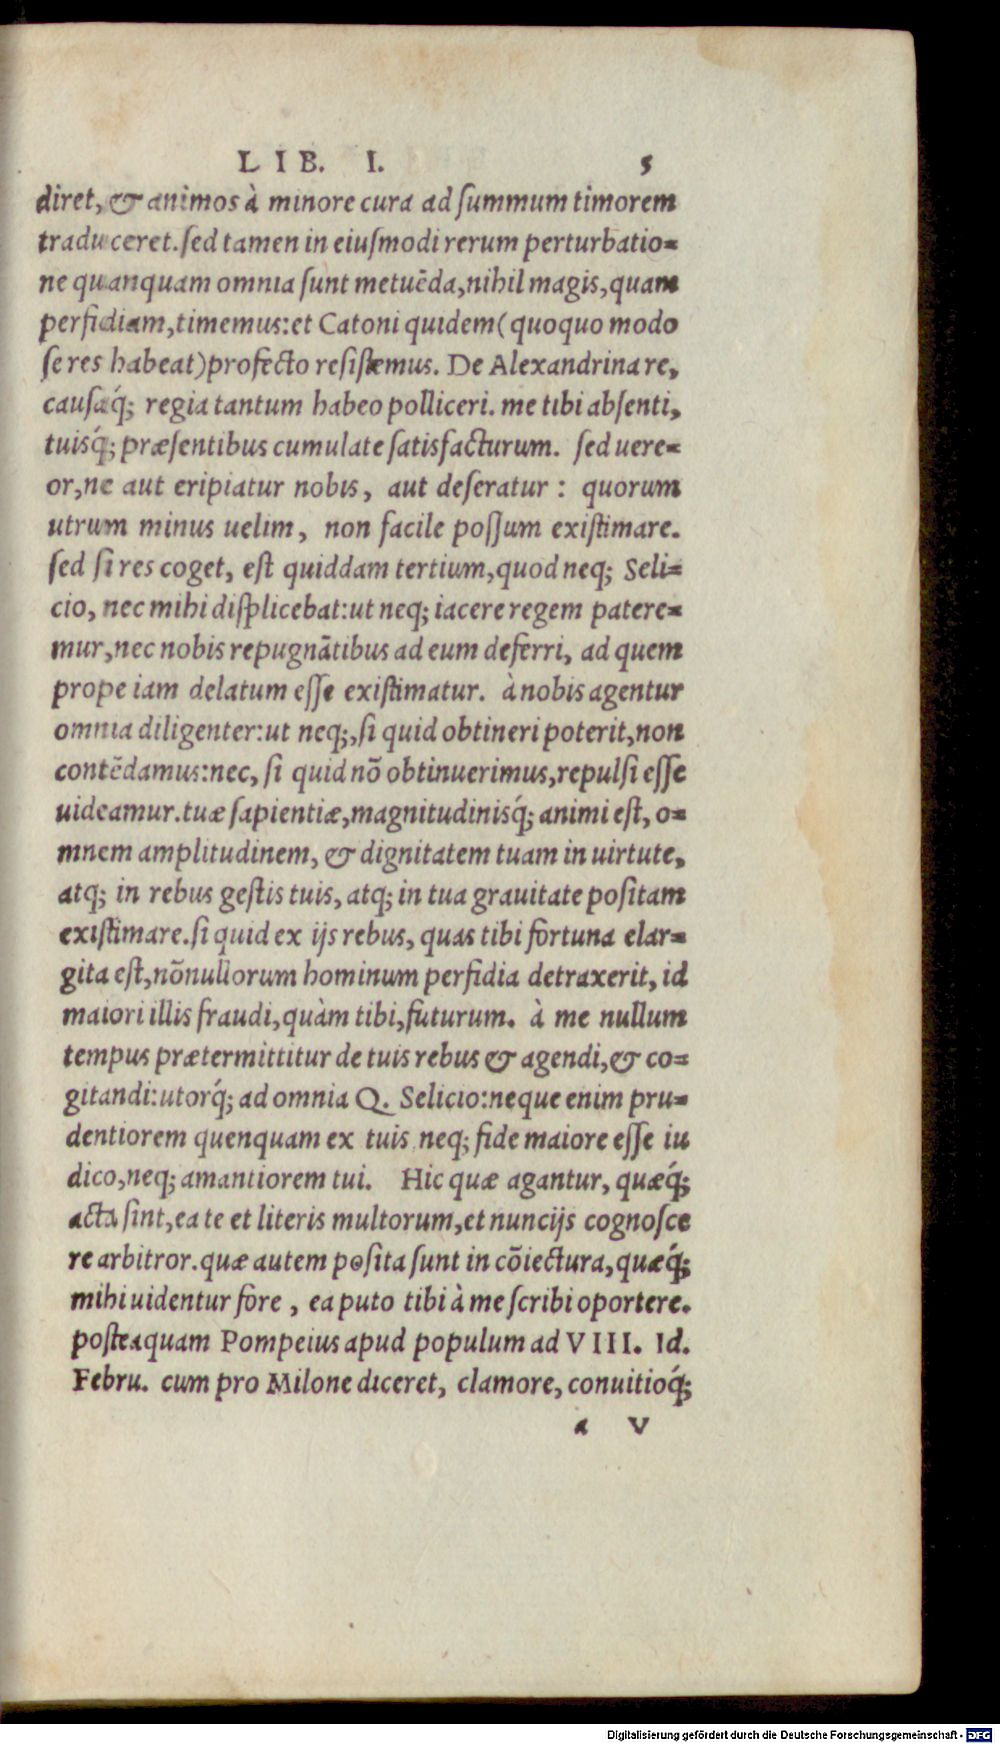 LIB. I. 5
diret, & animos à minore cura ad ſummum timorem
traduceret. ſed tamen in eiuſmodi rerum perturbatio=
ne quanquam omnia ſunt metuēda, nihil magis, quam
perfidiam, timemus: et Catoni quidem (quoquo modo
ſe res habeat) profecto reſiſtemus. De Alexandrina re,
cauſaq́; regia tantum habeo polliceri. me tibi abſenti,
tuisq́; præſentibus cumulate ſatisfacturum. ſed uere=
or, ne aut eripiatur nobis, aut deſeratur: quorum
utrum minus uelim, non facile poſſum exiſtimare.
ſed ſi res coget, eſt quiddam tertium, quod neq; Seli=
cio, nec mihi diſplicebat: ut neq; iacere regem patere=
mur, nec nobis repugnātibus ad eum deferri, ad quem
prope iam delatum eſſe exiſtimatur. à nobis agentur
omnia diligenter: ut neq;, ſi quid obtineri poterit, non
contēdamus: nec, ſi quid nō obtinuerimus, repulſi eſſe
uideamur. tuæ ſapientiæ, magnitudinisq́; animi eſt, o=
mnem amplitudinem, & dignitatem tuam in uirtute,
atq; in rebus geſtis tuis, atq; in tua grauitate poſitam
exiſtimare. ſi quid ex ijs rebus, quas tibi fortuna elar=
gita eſt, nōnullorum hominum perfidia detraxerit, id
maiori illis fraudi, quàm tibi, futurum. à me nullum
tempus prætermittitur de tuis rebus & agendi, & co=
gitandi: utorq́; ad omnia Q. Selicio: neque enim pru=
dentiorem quenquam ex tuis neq; fide maiore eſſe iu
dico, neq; amantiorem tui. Hic quæ agantur, quæq́;
acta ſint, ea te et literis multorum, et nuncijs cognoſce
re arbitror. quæ autem poſita ſunt in cōiectura, quæq́;
mihi uidentur fore, ea puto tibi à me ſcribi oportere.
poſteaquam Pompeius apud populum ad VIII. Id.
Febru. cum pro Milone diceret, clamore, conuitioq́;
a V
Digitalisierung gefördert durch die Deutsche Forschungsgemeinschaft - DFG